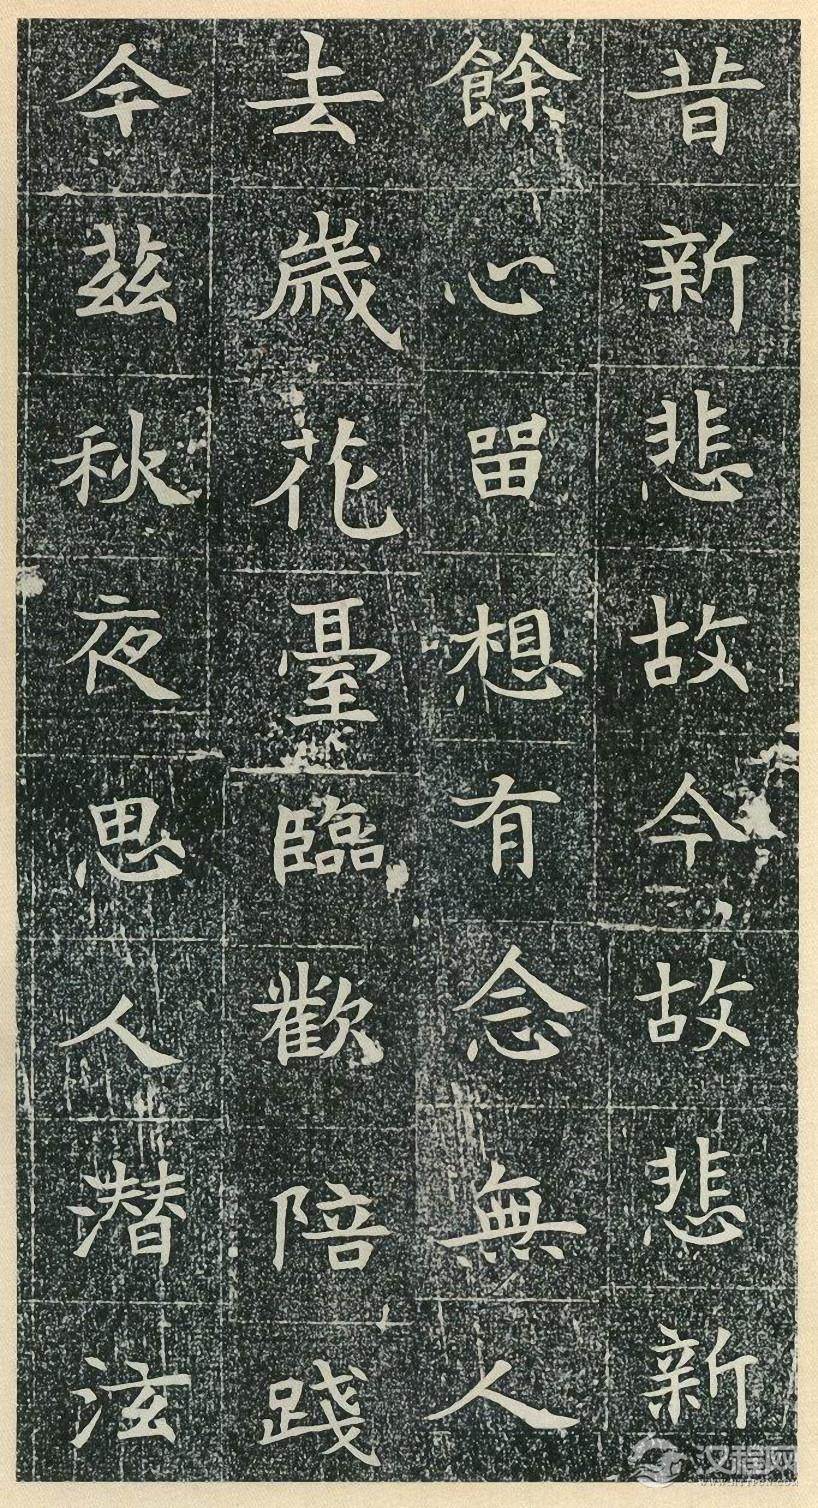 昔新悲故今故悲新
餘心留想有念無人
去歲花臺臨歡陪踐
今茲秋夜思人潜泫
汉程网
WWW.HTTPCN.COM